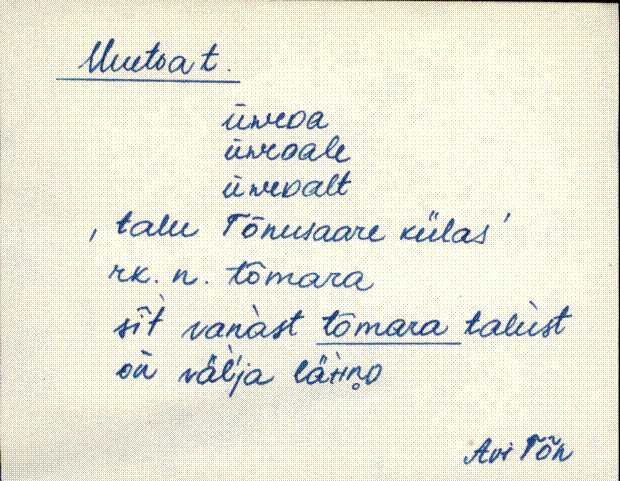 Uuetoa t.
üweoa
üweoale
üweoalt
, talu Tõnusaare külas'
rk. n. tõmara
sìt̀ vanàst tõmara talùst
on väl̀ja läìnD
Avi Tõn